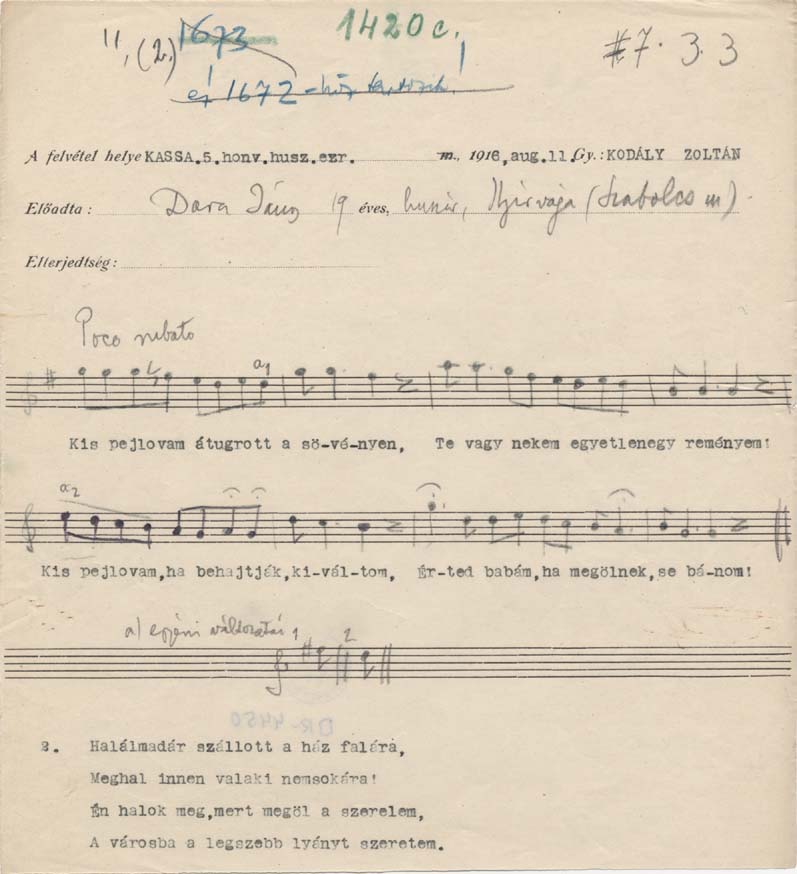 11, (2.) 1673 1420 c. #7. 3. 3
ez 1672-höz tartozik!
A felvétel helye KASSA.5.honv.husz.ezr. m., 1916,aug.11. Gy.: KODÁLY ZOLTÁN
Előadta: Dara János 19 éves, huszár, Nyirvaja (Szabolcs m).
Elterjedtség:
Poco rubato
a1
Kis pejlovam átugrott a sö-vé-nyen, Te vagy nekem egyetlenegy reményem!
a2
Kis pejlovam,ha behajtják,ki-vál-tom, Ér-ted babám,ha megölnek,se bá-nom!
a) egyéni változatás 1 2
DR-4450
2. Halálmadár szállott a ház falára,
Meghal innen valaki nemsokára!
Én halok meg,mert megöl a szerelem,
A városba a legszebb lyányt szeretem.